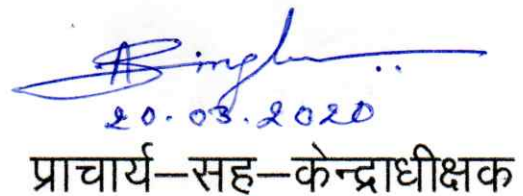 ASingh
20.03.2020
प्राचार्य–सह–केन्द्राधीक्षक